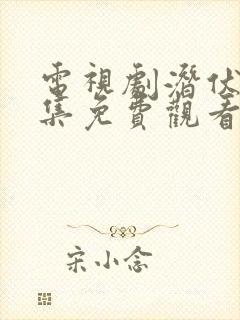 電視劇潛伏
集免費觀看
宋小念